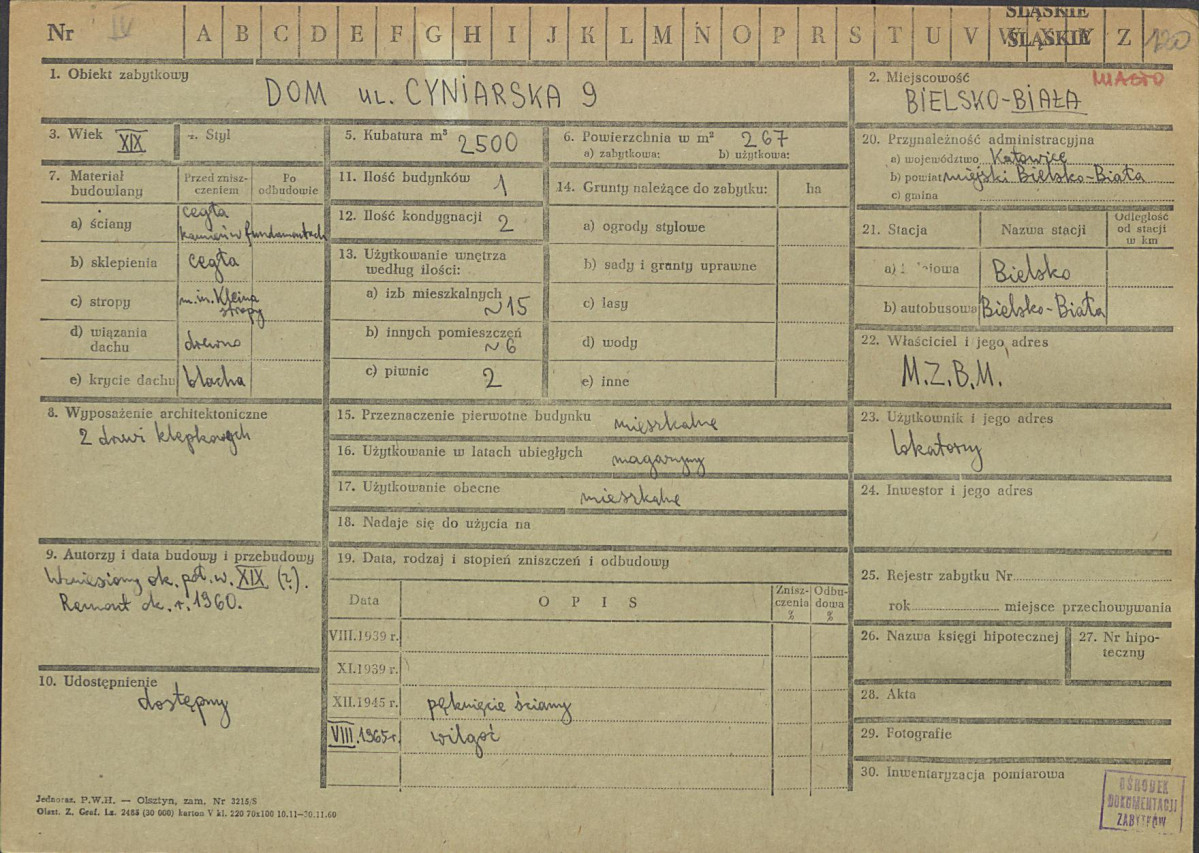 Nr IV A B C D E F G H I J K L M N O P R S T U V W X Y Z 120
ŚLĄSKIE
ŚLĄSKIE
1. Obiekt zabytkowy
DOM ul. CYNIARSKA 9
2. Miejscowość MIASTO
BIELSKO-BIAŁA
3. Wiek XIX
4. Styl
5. Kubatura m³ 2500
6. Powierzchnia w m² 267
a) zabytkowa: b) użytkowa:
20. Przynależność administracyjna
a) województwo Katowice
b) powiat miejski Bielsko-Biała
c) gmina
7. Materiał budowlany
Przed zniszczeniem
Po odbudowie
a) ściany cegła
kamień w fundamentach
b) sklepienia cegła
c) stropy m.in. Kleina
stropy
d) wiązania dachu drewno
e) krycie dachu blacha
11. Ilość budynków 1
12. Ilość kondygnacji 2
13. Użytkowanie wnętrza
według ilości:
a) izb mieszkalnych ~15
b) innych pomieszczeń ~6
c) piwnic 2
14. Grunty należące do zabytku: ha
a) ogrody stylowe
b) sady i grunty uprawne
c) lasy
d) wody
e) inne
21. Stacja
Nazwa stacji
Odległość
od stacji
w km
Bielsko
b) autobusowa Bielsko-Biała
22. Właściciel i jego adres
M.Z.B.M.
8. Wyposażenie architektoniczne
2 drzwi klepkowych
15. Przeznaczenie pierwotne budynku mieszkalne
16. Użytkowanie w latach ubiegłych magazyny
17. Użytkowanie obecne mieszkalne
18. Nadaje się do użycia na
23. Użytkownik i jego adres
lokatorzy
24. Inwestor i jego adres
9. Autorzy i data budowy i przebudowy
Wzniesiony ok. poł. w. XIX (?).
Remont ok. r. 1960.
10. Udostępnienie
dostępny
19. Data, rodzaj i stopień zniszczeń i odbudowy
Data
O P I S
Zniszczenia
%
Odbudowa
%
VIII.1939 r.
XI.1939 r.
XII.1945 r. pęknięcie ściany
VIII.1965 r. wilgoć
25. Rejestr zabytku Nr
rok miejsce przechowywania
26. Nazwa księgi hipotecznej
27. Nr hipoteczny
28. Akta
29. Fotografie
30. Inwentaryzacja pomiarowa
OŚRODEK
DOKUMENTACJI
ZABYTKÓW
Jednoraz. P.W.H. — Olsztyn, zam. Nr 3215/S
Olszt. Z. Graf. Lz. 2485 (30 000) karton V kl. 220 70x100 10.11—30.11.60